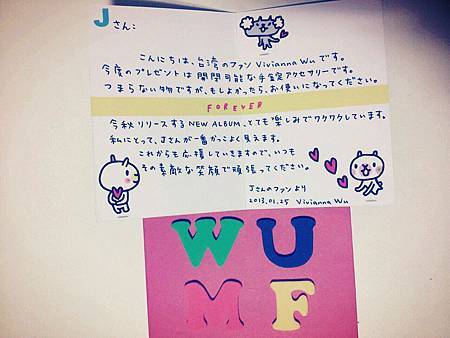 Jさん:
こんにちは、台湾のファン Vivianna Wu です。
今度のプレゼントは開閉可能な手錠アクセサリーです。
つまらない物ですが、もしよかったら、お使いになってください。
FOREVER
今秋リリースする NEW ALBUM、とても楽しみでワクワクしています。
私にとって、Jさんが一番かっこよく見えます。
これからも応援していきますので、いつも
その素敵な笑顔で頑張ってください。
Jさんのファンより
2013.01.25 Vivianna Wu
WU
MF